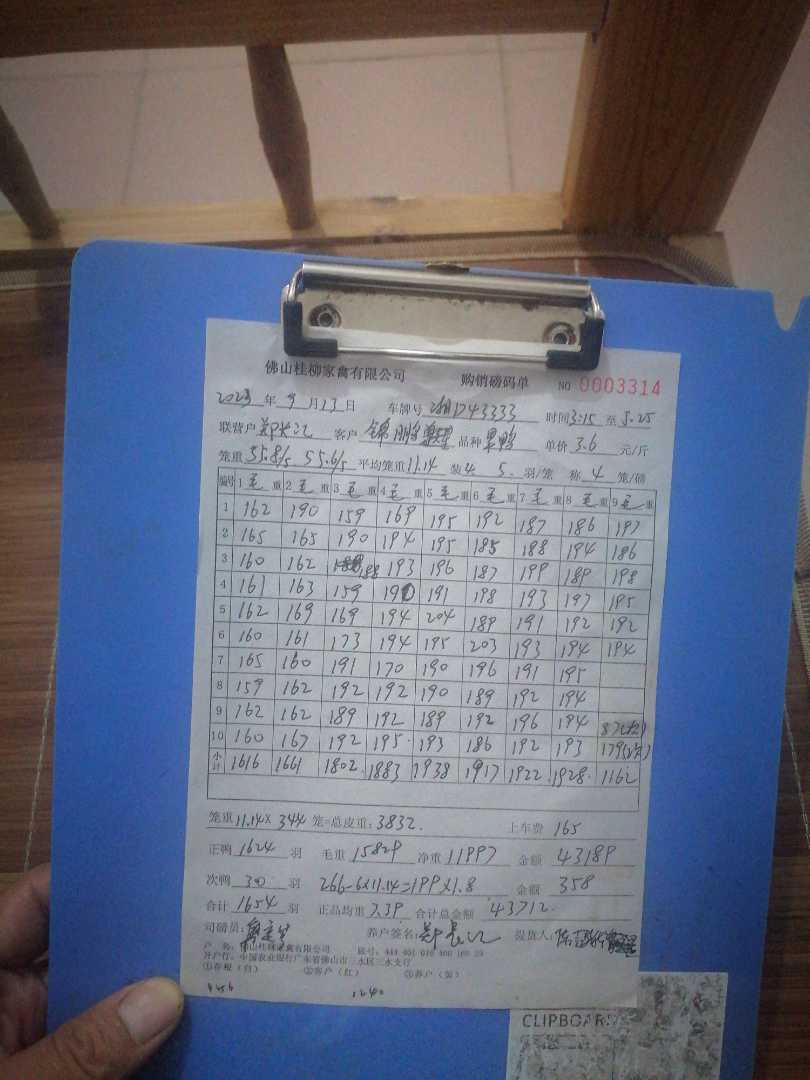 佛山桂柳家禽有限公司 购销磅码单 NO 0003314
2023 年 9 月 13 日 车牌号 湘D743333 时间 3:15 至 5:25
联营户 郑长江 客户 锦鹏 品种 单价 3.6 元/斤
笼重 55.8/5 55.6/5 平均笼重 11.14 装 4 5 羽/笼 称 4 笼/磅
编号 1 毛 重 2 毛 重 3 毛 重 4 毛 重 5 毛 重 6 毛 重 7 毛 重 8 毛 重 9 毛 重
1 162 190 159 169 195 192 187 186 197
2 165 165 190 194 195 185 188 194 186
3 160 162 188 193 196 187 199 189 198
4 161 163 159 190 191 198 193 197 195
5 162 169 169 194 204 189 191 192 192
6 160 161 173 194 195 203 193 194 194
7 165 160 191 170 190 196 191 195
8 159 162 192 192 190 189 192 194
9 162 162 189 192 189 192 196 194 87(次)
10 160 167 192 195 193 186 192 193 179(次)
小计 1616 1661 1802 1883 1938 1917 1922 1928 1162
笼重 11.14 × 344 笼=总皮重: 3832 上车费 165
正鸭 1624 羽 毛重 15829 净重 11997 金额 43189
次鸭 30 羽 266-6×11.14=199×1.8 金额 358
合计 1654 羽 正品均重 7.39 合计总金额 43712
司磅员: 养户签名: 郑长江 提货人: 陈
户 名: 佛山桂柳家禽有限公司 账号:
开户行: 中国农业银行广东省佛山市三水区三水支行
①存根(白) ②客户(红) ③养户(黄)
CLIPBOARD